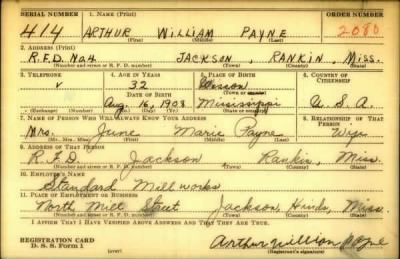 SERIAL NUMBER 1. NAME (Print) ORDER NUMBER
414 ARTHUR WILLIAM PAYNE 2080
(First) (Middle) (Last)
2. ADDRESS (Print)
R.F.D. No4 JACKSON, RANKIN, MISS.
(Number and street or R. F. D. number) (Town) (County) (State)
3. TELEPHONE 4. AGE IN YEARS 5. PLACE OF BIRTH 6. COUNTRY OF CITIZENSHIP
v 32 Wesson
DATE OF BIRTH (Town or county)
Aug 16, 1908 Mississippi U.S.A.
(Exchange) (Number) (Mo.) (Day) (Yr.) (State or country)
7. NAME OF PERSON WHO WILL ALWAYS KNOW YOUR ADDRESS 8. RELATIONSHIP OF THAT PERSON
Mrs. June Marie Payne Wife
(Mr., Mrs., Miss) (First) (Middle) (Last)
9. ADDRESS OF THAT PERSON
R.F.D Jackson Rankin, Miss.
(Number and street or R. F. D. number) (Town) (County) (State)
10. EMPLOYER'S NAME
Standard Millworks
11. PLACE OF EMPLOYMENT OR BUSINESS
North Mill Street Jackson, Hinds, Miss.
(Number and street or R. F. D. number) (Town) (County) (State)
I AFFIRM THAT I HAVE VERIFIED ABOVE ANSWERS AND THAT THEY ARE TRUE.
REGISTRATION CARD
D. S. S. Form 1 (over) Arthur William Payne
(Registrant's signature)